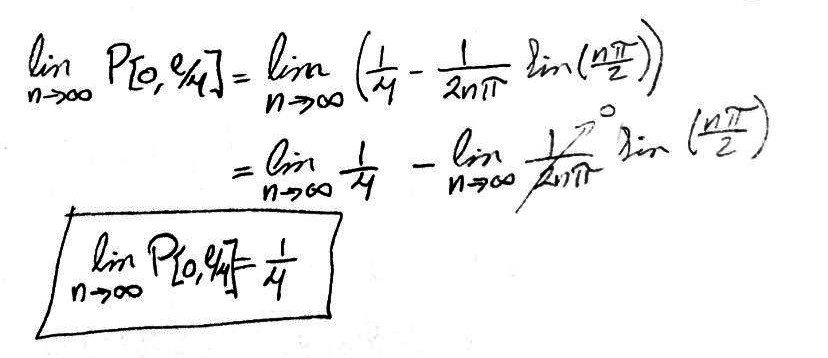 lim n→∞ P[0, ℓ/4] = lim n→∞ (1/4 - 1/2nπ sin(nπ/2))
= lim n→∞ 1/4 - lim n→∞ 1/2nπ → 0 sin (nπ/2)
lim n→∞ P[0, ℓ/4] = 1/4